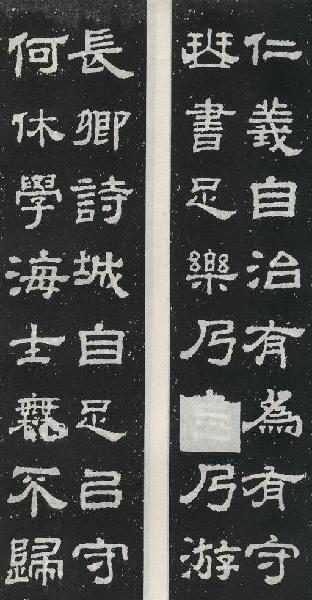 仁義自治有為有守
班書足樂乃乃游
長卿詩城自足㠯守
何休學海士不歸